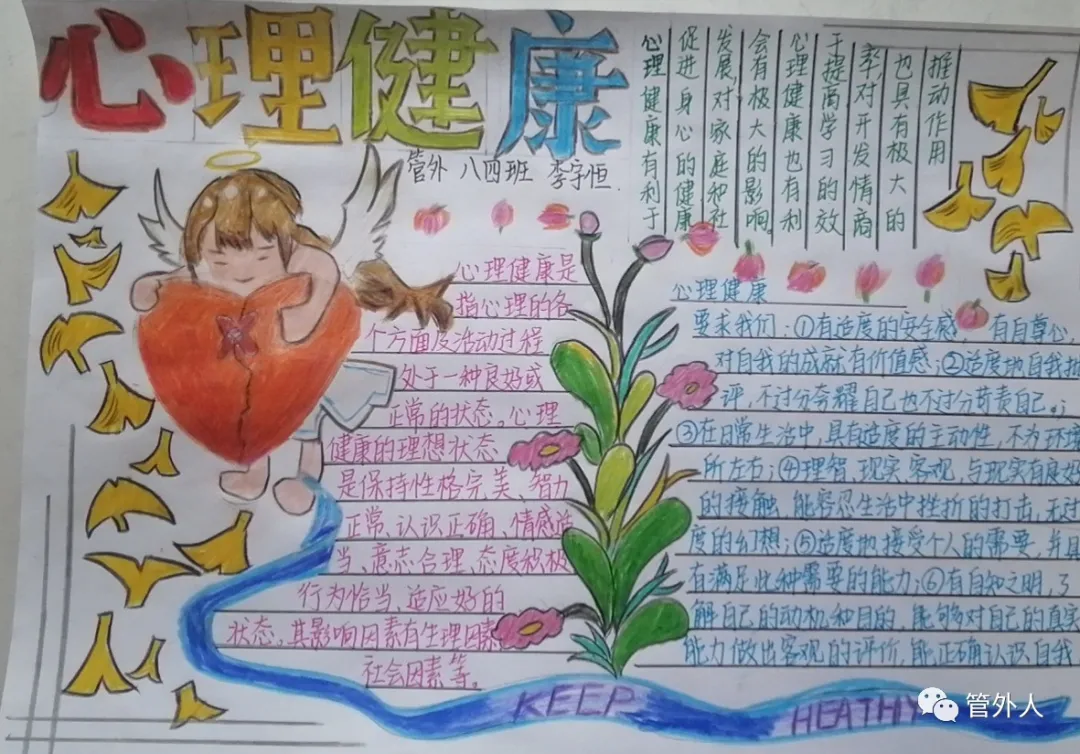 心理健康
管外 八四班 李宇恒
心理健康有利于
促进身心的健康
发展,对家庭和社
会有极大的影响。
心理健康也有利
于提高学习的效
率,对开发情商
也具有极大的
推动作用
心理健康是
指心理的各
个方面及活动过程
处于一种良好或
正常的状态。心理
健康的理想状态
是保持性格完美、智力
正常、认识正确、情感适
当、意志合理、态度积极
行为恰当、适应好的
状态。其影响因素有生理因素
社会因素等。
心理健康
要求我们:①有适度的安全感 有自尊心,
对自我的成就有价值感;②适度地自我批
评,不过分夸耀自己也不过分苛责自己。;
③在日常生活中,具有适度的主动性,不为环境
所左右;④理智,现实,客观,与现实有良好
的接触,能容忍生活中挫折的打击,无过
度的幻想;⑤适度地接受个人的需要,并且
有满足此种需要的能力;⑥有自知之明,了
解自己的动机和目的,能够对自己的真实
能力做出客观的评价,能正确认识自我
KEEP HEATHY
管外人